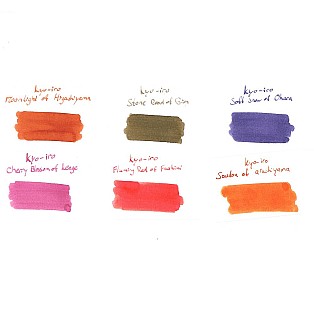 Kyo-iro
Moonlight of Higashiyama
Kyo-iro
Stone Road of Gion
Kyo-iro
Soft Snow of Ohara
Kyo-iro
Cherry Blossom of Keage
Kyo-iro
Flaming Red of Fushimi
Kyo-iro
of arashiyama